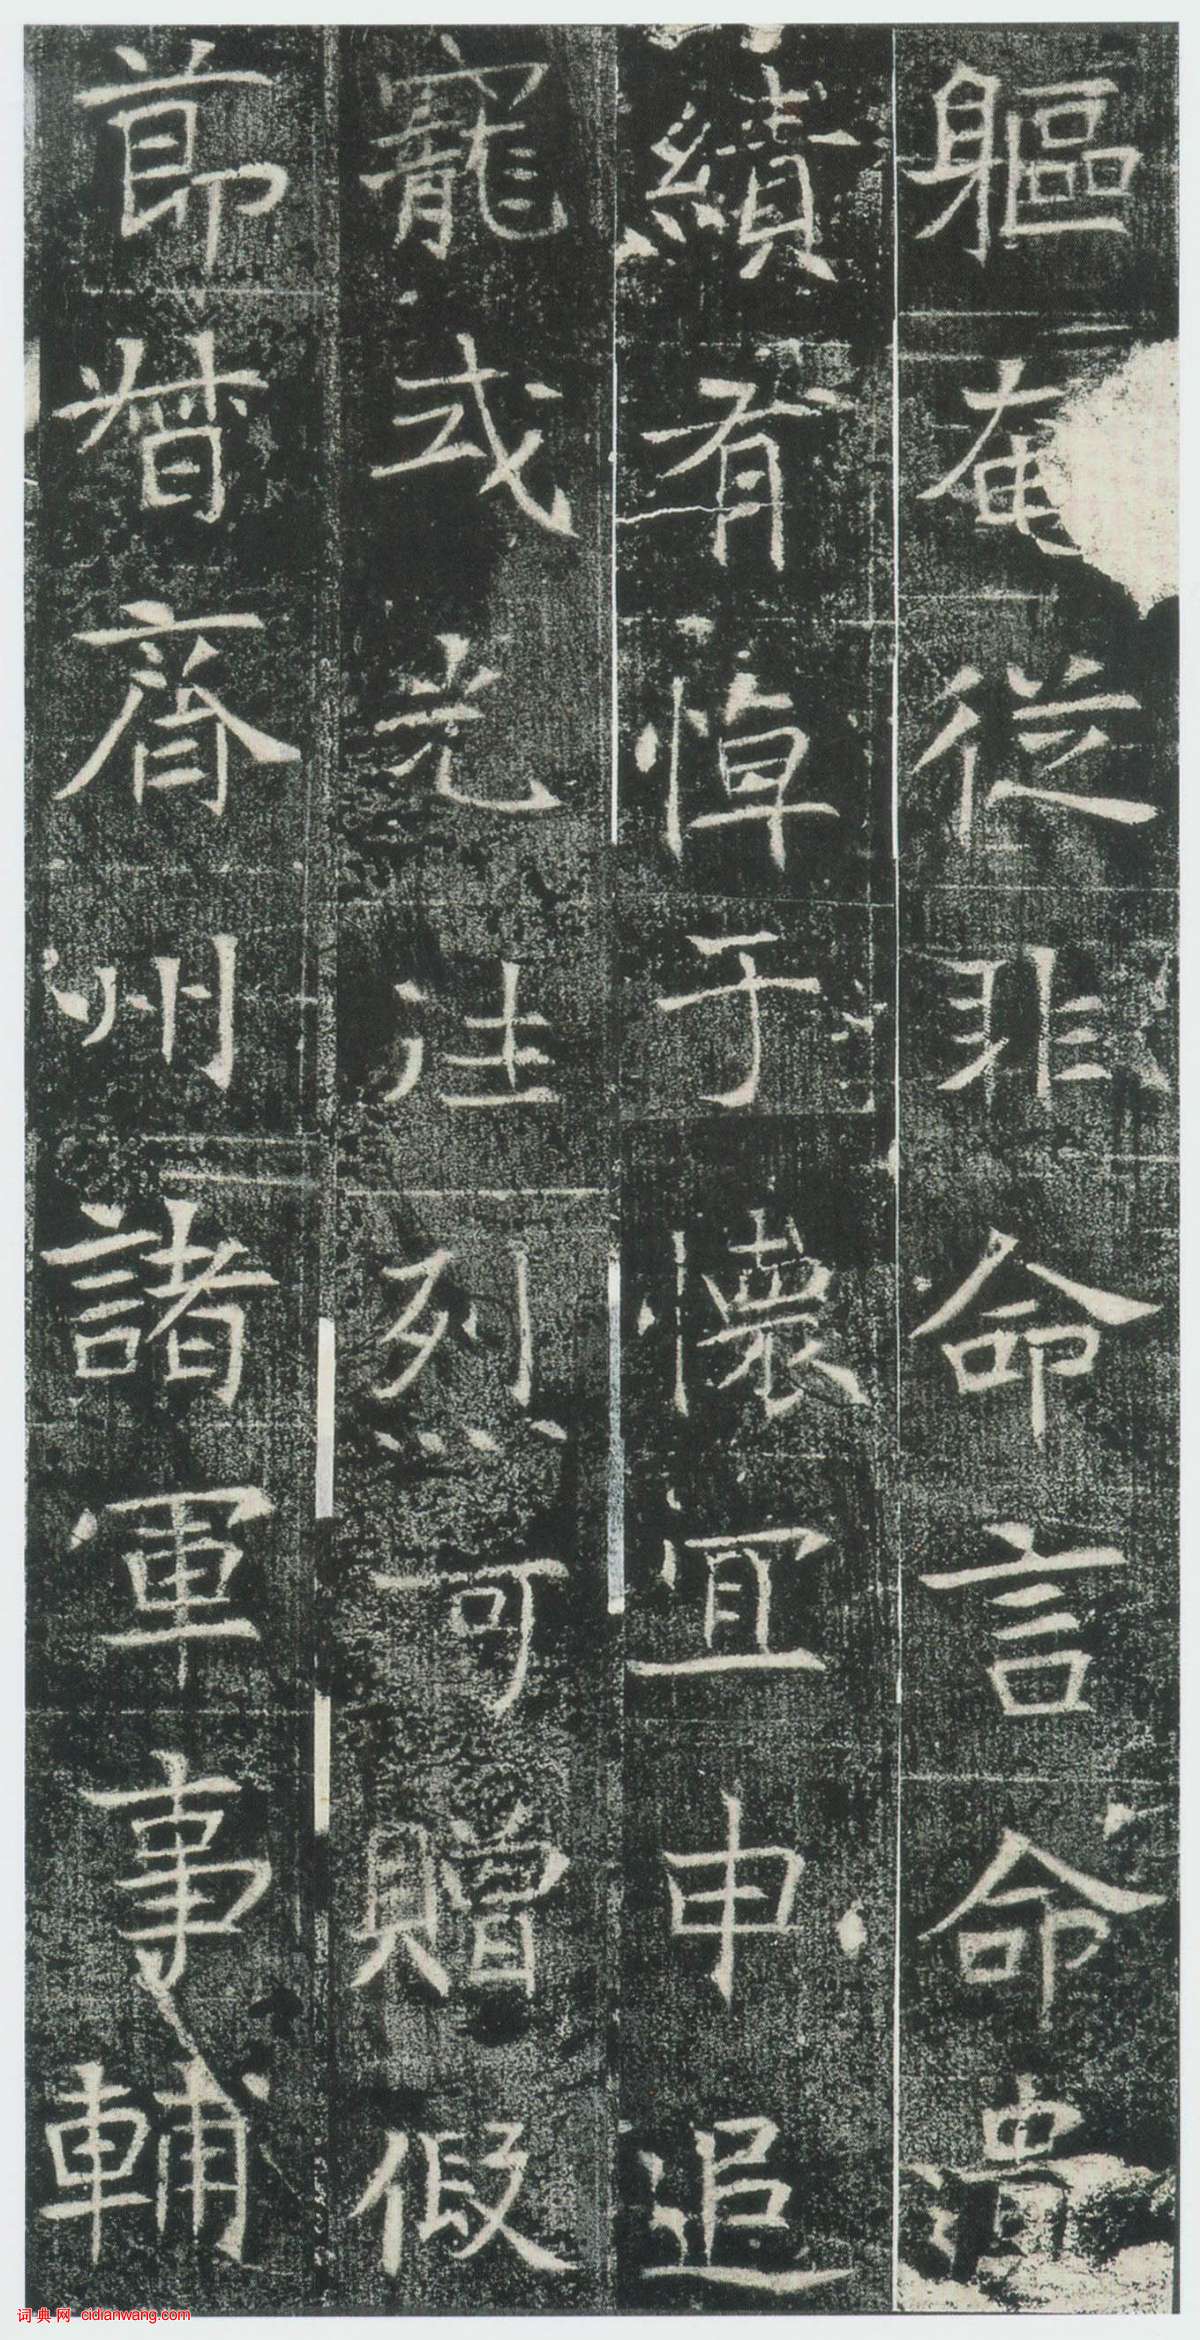 軀奄從非命言命
績有悼于懷宜申追
寵式光往烈可贈假
節督齊州諸軍事輔
词典网 cidianwang.com